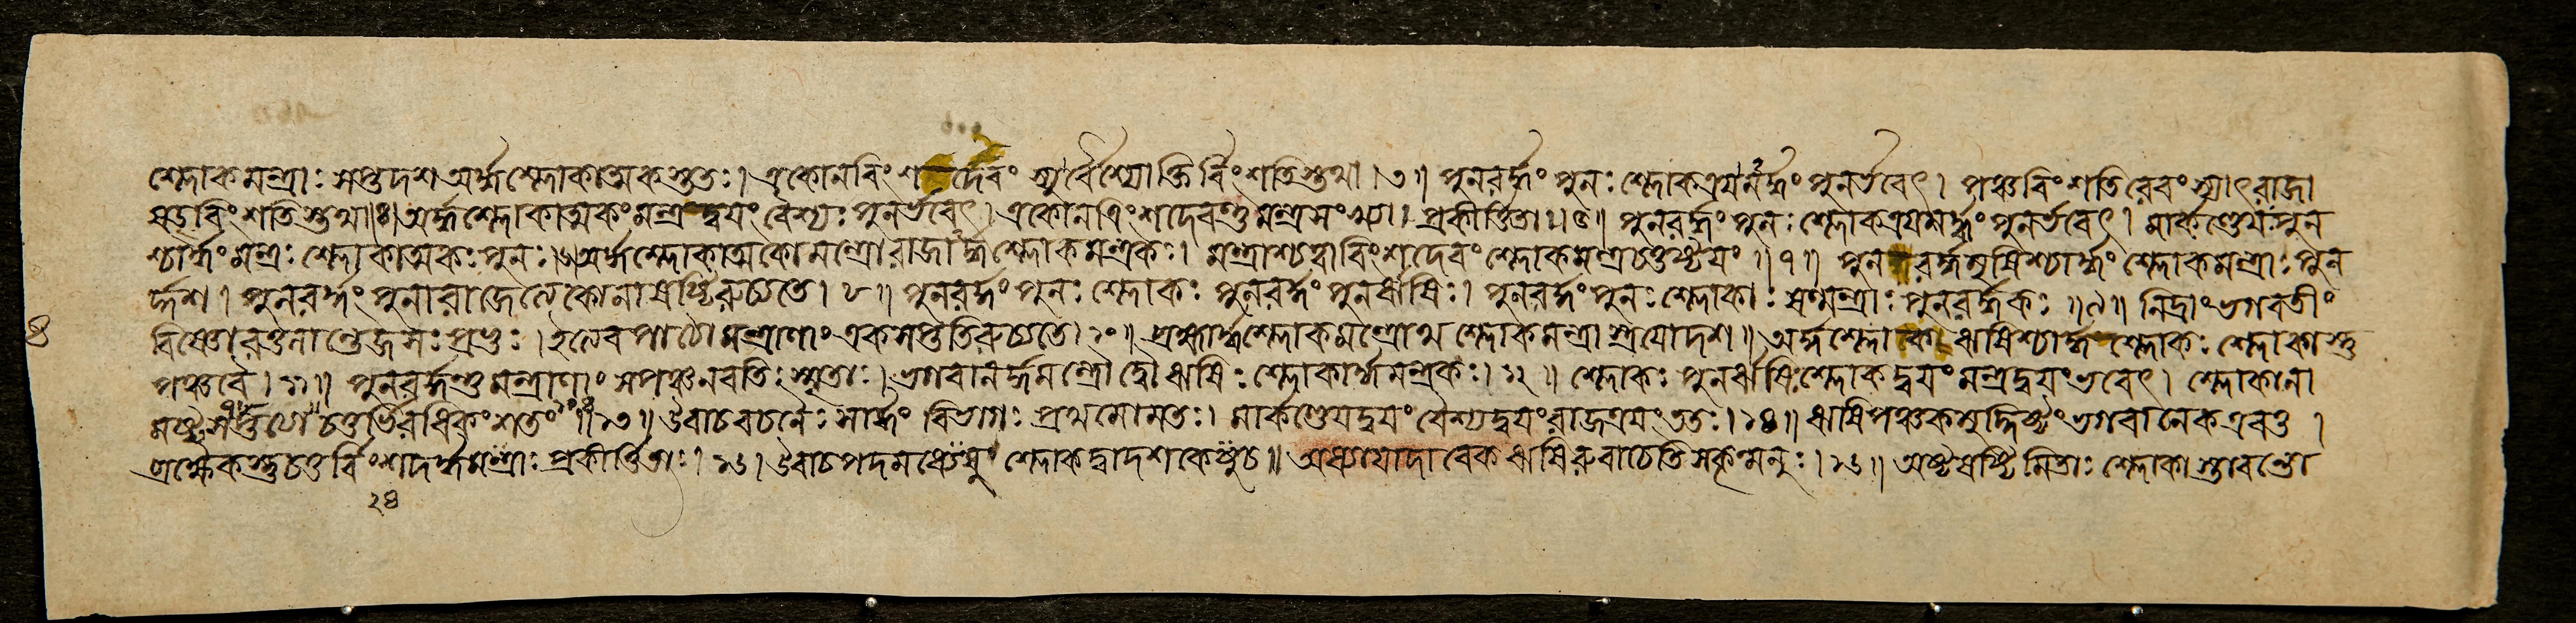 শ্লোকমন্ত্রাঃ সপ্তদশ অর্দ্ধশ্লোকাত্মকস্ততঃ। একোনবিংশ র্দেবং স্যুর্বৈশ্যোক্তির্বিংশতিস্তথা।৩॥ পুনরর্দ্ধং পুনঃ শ্লোকত্রয়মর্দ্ধং পুনর্ভবেৎ। পঞ্চবিংশতিরেবং স্যাৎ রাজা
ষড্বিংশতিস্তথা॥৪॥ অর্দ্ধশ্লোকাত্মকং মন্ত্রদ্বয়ং বৈশ্যঃ পুনর্ভবেৎ। একোনত্রিংশদেবস্তু মন্ত্রসংখ্যা প্রকীর্ত্তিতা॥৫॥ পুনরর্দ্ধং পুনঃ শ্লোকত্রয়মর্দ্ধং পুনর্ভবেৎ। মার্কণ্ডেয়ঃ পুন
শ্চার্দ্ধং মন্ত্রঃ শ্লোকাত্মকঃ পুনঃ।৬॥ অর্দ্ধশ্লোকাত্মকো মন্ত্রো রাজার্দ্ধশ্লোকমন্ত্রকঃ। মন্ত্রাশ্চত্বারিংশদেবং শ্লোকমন্ত্রচতুষ্টয়ং॥৭॥ পুনরর্দ্ধমৃষিশ্চার্দ্ধং শ্লোকমন্ত্রাঃ পুন
র্দ্দশ। পুনরর্দ্ধং পুনারাজেত্যেকোনাষষ্টিরুচ্যতে।৮॥ পুনরর্দ্ধং পুনঃ শ্লোকঃ পুনরর্দ্ধং পুনর্ঋষিঃ। পুনরর্দ্ধং পুনঃ শ্লোকাঃ ষণ্মন্ত্রাঃ পুনরর্দ্ধকঃ॥৯॥ নিদ্রাং ভগবতীং
বিষ্ণোরতুলাং তেজসঃ প্রভুঃ। ইত্যেব পাঠো মন্ত্রাণাং একসপ্ততিরুচ্যতে।১০॥ ব্রহ্মার্দ্ধশ্লোকমন্ত্রোথ শ্লোকমন্ত্রাস্ত্রয়োদশ॥ অর্দ্ধশ্লোকো ঋষিশ্চার্দ্ধশ্লোকঃ শ্লোকাস্তু
পঞ্চবৈ।১১॥ পুনরর্দ্ধস্তু মন্ত্রাণাং সপঞ্চনবতিঃ স্মৃতাঃ। ভগবানর্দ্ধমন্ত্রৌ দ্বৌ ঋষিঃ শ্লোকার্দ্ধমন্ত্রকঃ।১২॥ শ্লোকঃ পুনর্ঋষিঃ শ্লোকদ্বয়ং মন্ত্রদ্বয়ং ভবেৎ। শ্লোকানা
মষ্টসপ্তত্যা চতুর্ভিরধিকং শতং॥১৩॥ উবাচবচনৈঃ সার্দ্ধং বিভাগঃ প্রথমো মতঃ। মার্কণ্ডেয়দ্বয়ং বৈশ্যদ্বয়ং রাজত্রয়ং ততঃ।১৪॥ ঋষিপঞ্চকমুদ্দিষ্টং ভগবানেক এব তু।
ব্রহ্মৈকস্তু চতুর্বিংশদর্দ্ধমন্ত্রাঃ প্রকীর্ত্তিতাঃ।১৫। উবাচপদমন্ত্রেষু শ্লোকদ্বাদশকেষু চ॥ অধ্যায়াদাবেক ঋষিরুবাচেতি সকৃন্মনুঃ।১৬॥ অষ্টষষ্টিমিতাঃ শ্লোকাস্তাবন্তো
২৪
৪